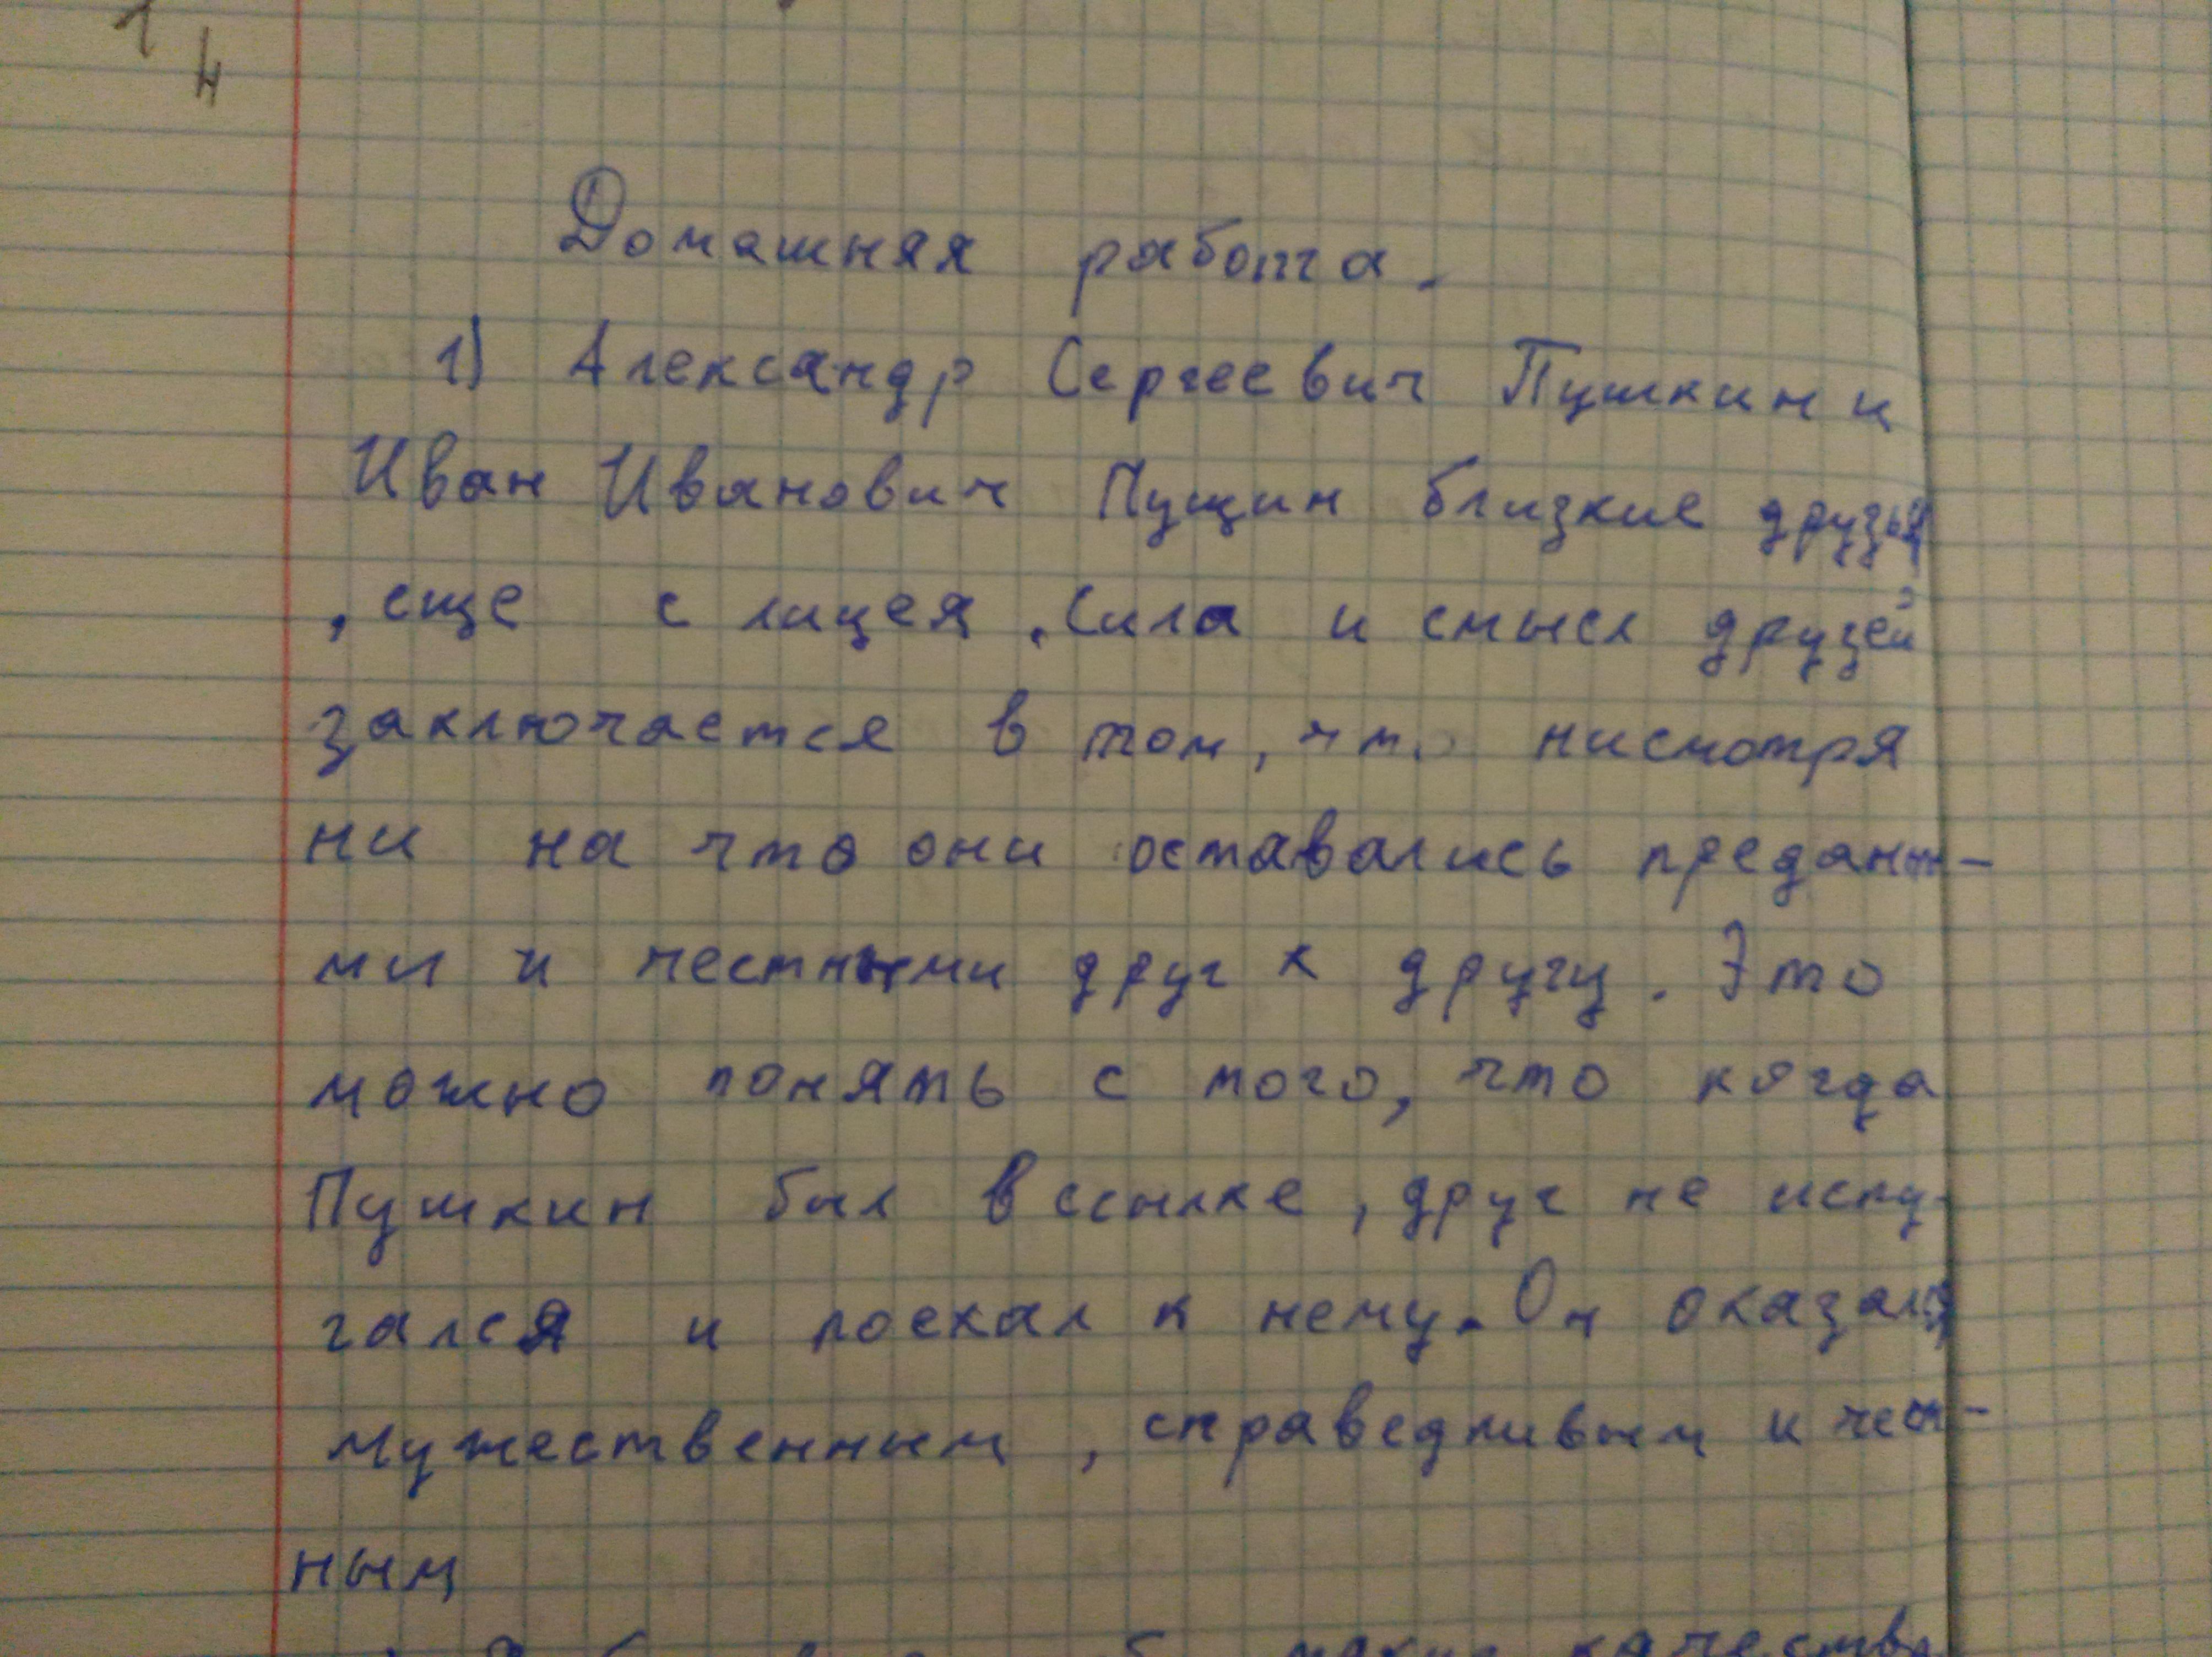 1
н
Домашняя работа.
1) Александр Сергеевич Пушкин и
Иван Иванович Пущин близкие друзья
, еще с лицея. Сила и смысл друзей
заключается в том, что нисмотря
ни на что они оставались предан-
ми и честными друг к другу. Это
можно понять с того, что когда
Пушкин был в ссылке, друг не испу-
гался и поехал к нему. Он оказался
мужественным, справедливым и чест-
ным
такие качества